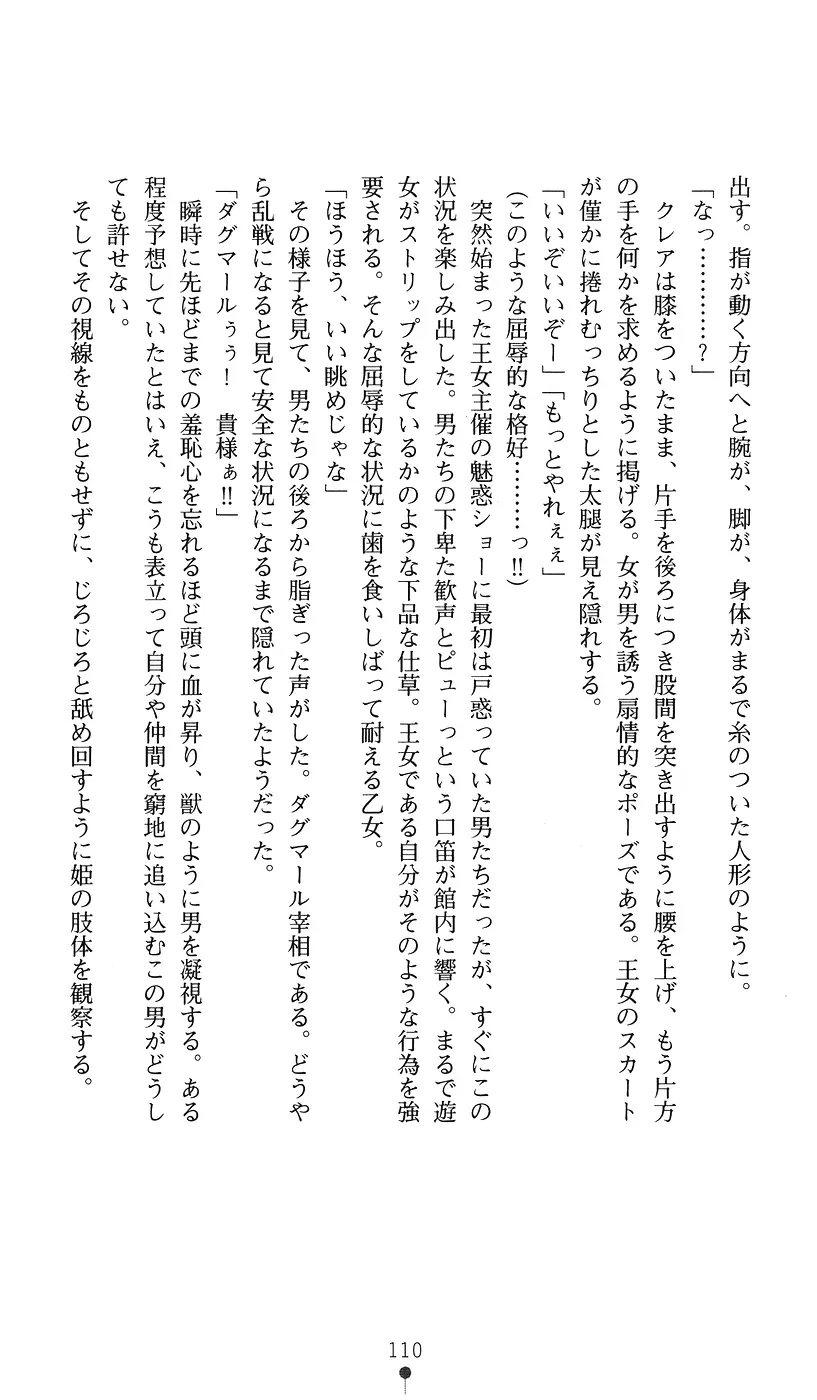 出す。指が動く方向へと腕が、脚が、身体がまるで糸のついた人形のように。
「なっ…………？」
　クレアは膝をついたまま、片手を後ろにつき股間を突き出すように腰を上げ、もう片方
の手を何かを求めるように掲げる。女が男を誘う扇情的なポーズである。王女のスカート
が僅かに捲れむっちりとした太腿が見え隠れする。
「いいぞいいぞー」「もっとやれぇぇ」
（このような屈辱的な格好………っ!!）
　突然始まった王女主催の魅惑ショーに最初は戸惑っていた男たちだったが、すぐにこの
状況を楽しみ出した。男たちの下卑た歓声とピューっという口笛が館内に響く。まるで遊
女がストリップをしているかのような下品な仕草。王女である自分がそのような行為を強
要される。そんな屈辱的な状況に歯を食いしばって耐える乙女。
「ほうほう、いい眺めじゃな」
　その様子を見て、男たちの後ろから脂ぎった声がした。ダグマール宰相である。どうや
ら乱戦になると見て安全な状況になるまで隠れていたようだった。
「ダグマールぅぅ！　貴様ぁ!!」
　瞬時に先ほどまでの羞恥心を忘れるほど頭に血が昇り、獣のように男を凝視する。ある
程度予想していたとはいえ、こうも表立って自分や仲間を窮地に追い込むこの男がどうし
ても許せない。
　そしてその視線をものともせずに、じろじろと舐め回すように姫の肢体を観察する。
110